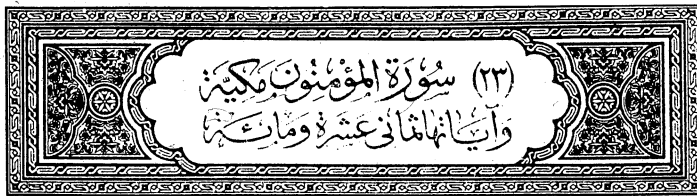 (٢٣) سُورَةُ المُؤْمِنُونَ مَكِيَّة
وَآيَاتُهَا ثَمَانِي عَشَرَةَ وَمَائَة